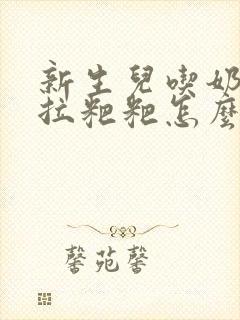 新生兒喫奶
拉粑粑怎麼
馨苑馨